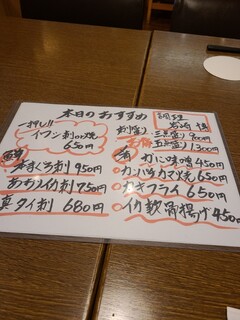 本日のおすすめ
調理
一押し!!
イワシ刺or焼
650円
刺盛り 三点盛り 900円
五点盛り 1300円
本まぐろ刺 950円
あおりイカ刺 750円
真タイ刺 680円
かに味噌 450円
カンパチカマ焼 650円
カキフライ 650円
イカ軟骨揚げ 450円